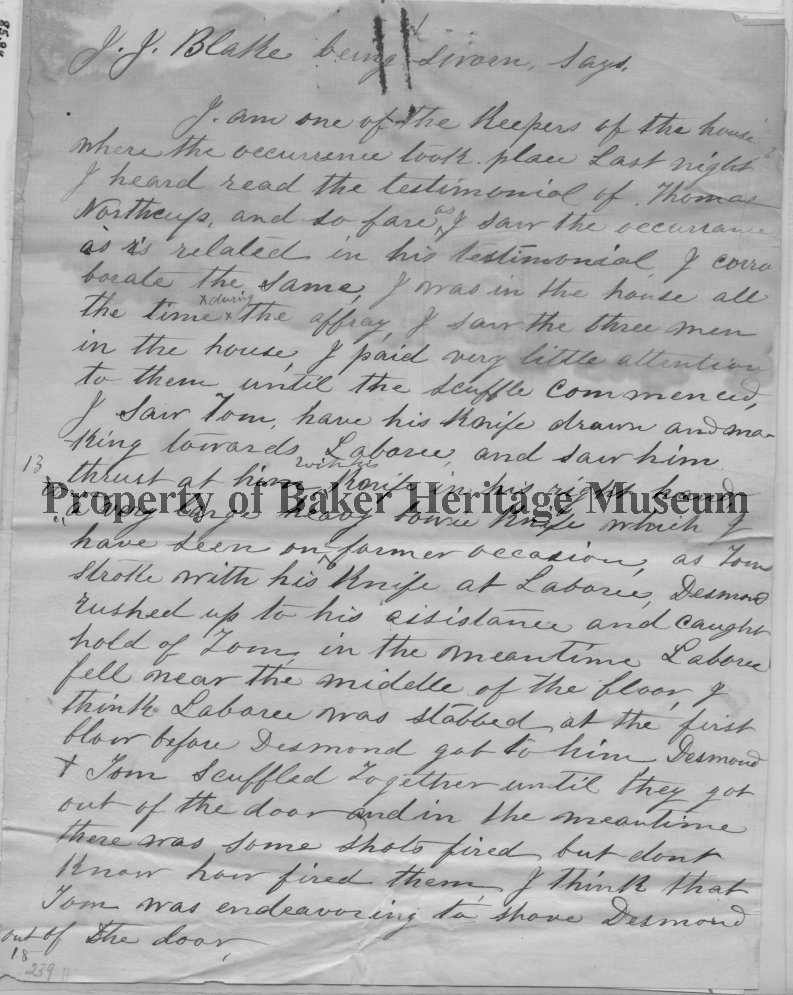 J. J. Blake being sworn, says,
I am one of the Keepers of the house
where the occurrence took place Last night
I heard read the testimonial of Thomas
Northcup, and so fare as I saw the occurrance
as is related in his testimonial I corro
borate the same, I was in the house all
the time & during the affray, I saw the three men
in the house, I paid very little attention
to them until the scuffle commenced,
I saw Tom, have his Knife drawn and ma-
king towards Laboree, and saw him
13
thrust at him with his Knife in his right hand
Property of Baker Heritage Museum
a very large heavy bowie Knife which I
have seen on former occasion, as Tom
stroke with his Knife at Laboree, Desmond
rushed up to his assistance and caught
hold of Tom, in the meantime Laboree
fell near the middle of the floor, I
think Laboree was stabbed at the first
blow before Desmond got to him Desmond
& Tom scuffled together until they got
out of the door and in the meantime
there was some shots fired but dont
Know how fired them, I think that
Tom was endeavoring to shove Desmond
out of the door,
18
239